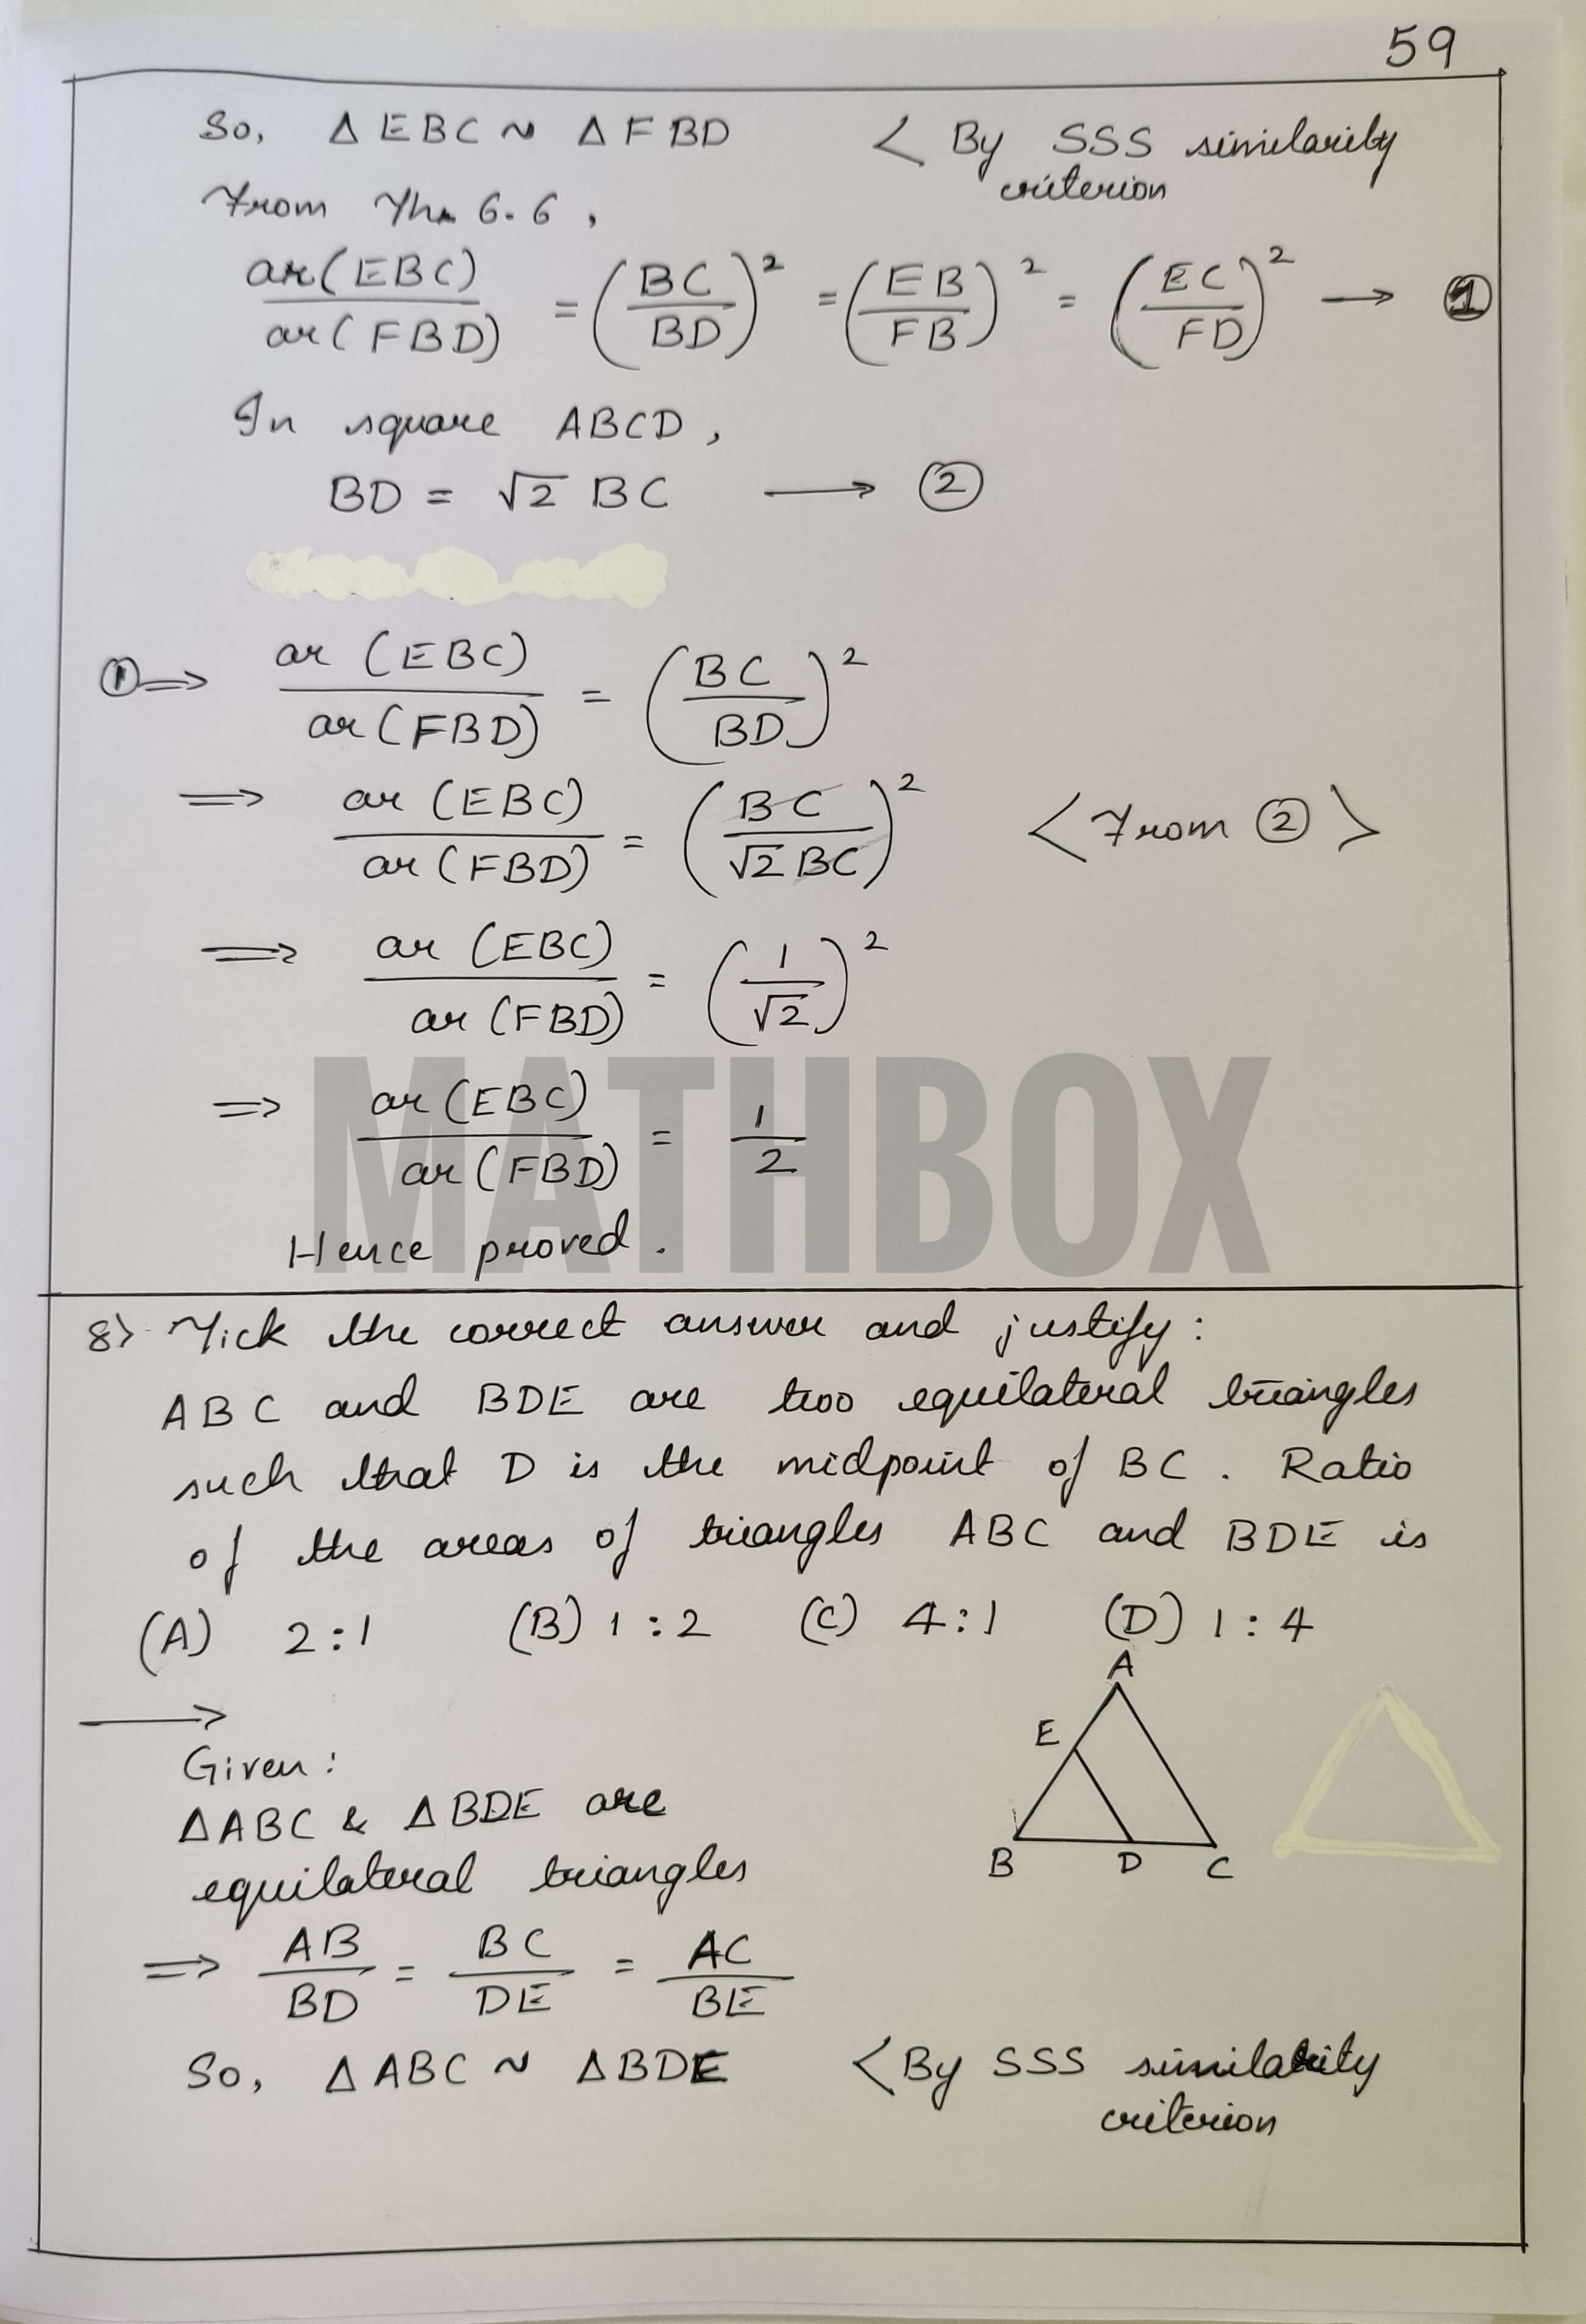 59
So, Δ EBC ~ Δ FBD < By SSS similarity
criterion
From Thm 6.6,
ar(EBC)/ar(FBD) = (BC/BD)² = (EB/FB)² = (EC/FD)² → ①
In square ABCD,
BD = √2 BC → ②
①⇒ ar (EBC)/ar (FBD) = (BC/BD)²
⇒ ar (EBC)/ar (FBD) = (BC/√2 BC)² < From ② >
⇒ ar (EBC)/ar (FBD) = (1/√2)²
⇒ ar (EBC)/ar (FBD) = 1/2
Hence proved.
MATHBOX
8> Tick the correct answer and justify:
ABC and BDE are two equilateral triangles
such that D is the midpoint of BC. Ratio
of the areas of triangles ABC and BDE is
(A) 2:1 (B) 1:2 (C) 4:1 (D) 1:4
→
A
E
B D C
Given:
Δ ABC & Δ BDE are
equilateral triangles
⇒ AB/BD = BC/DE = AC/BE
So, Δ ABC ~ Δ BDE < By SSS similarity
criterion